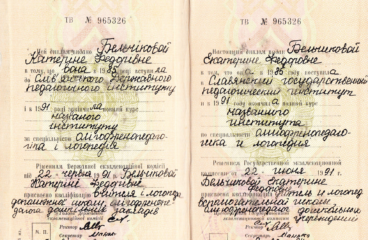 ТВ № 965326
Цей диплом видано Бельчиковой
Катерине Федорівне
в тому, що вона в 1985 році вступила
до Слов'янського Державного
педагогічного інституту
і в 1991 році повний курс
названого
інституту
за спеціальністю олігофренопедагогі-
ка і логопедія
Рішенням Державної екзаменаційної комісії
від 22 червня 1991 р. Бельчиковой
Катерине Федорівне
присвоєно кваліфікацію логопед
допоміжної школи, олігофренопе-
дошкільних закладів
ТВ № 965326
Настоящий диплом выдан Бельчиковой
Екатерине Федоровне
в том, что она в 1985 году поступила
в Славянский государственный
педагогический институт
и в 1991 году окончила полный курс
названного
института
по специальности олигофренопедаго-
гика и логопедия
Решением Государственной экзаменационной комиссии
от 22 июня 1991 г.
Бельчиковой Екатерине
Федоровне
и логопед
вспомогательной школы,
олигофренопедагог дошкольных
учреждений